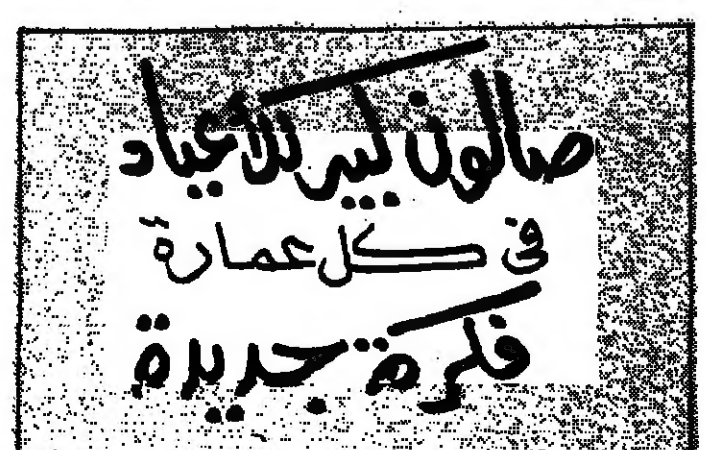 صالون كبير للأعياد
فى كل عمارة
فكرة جديدة